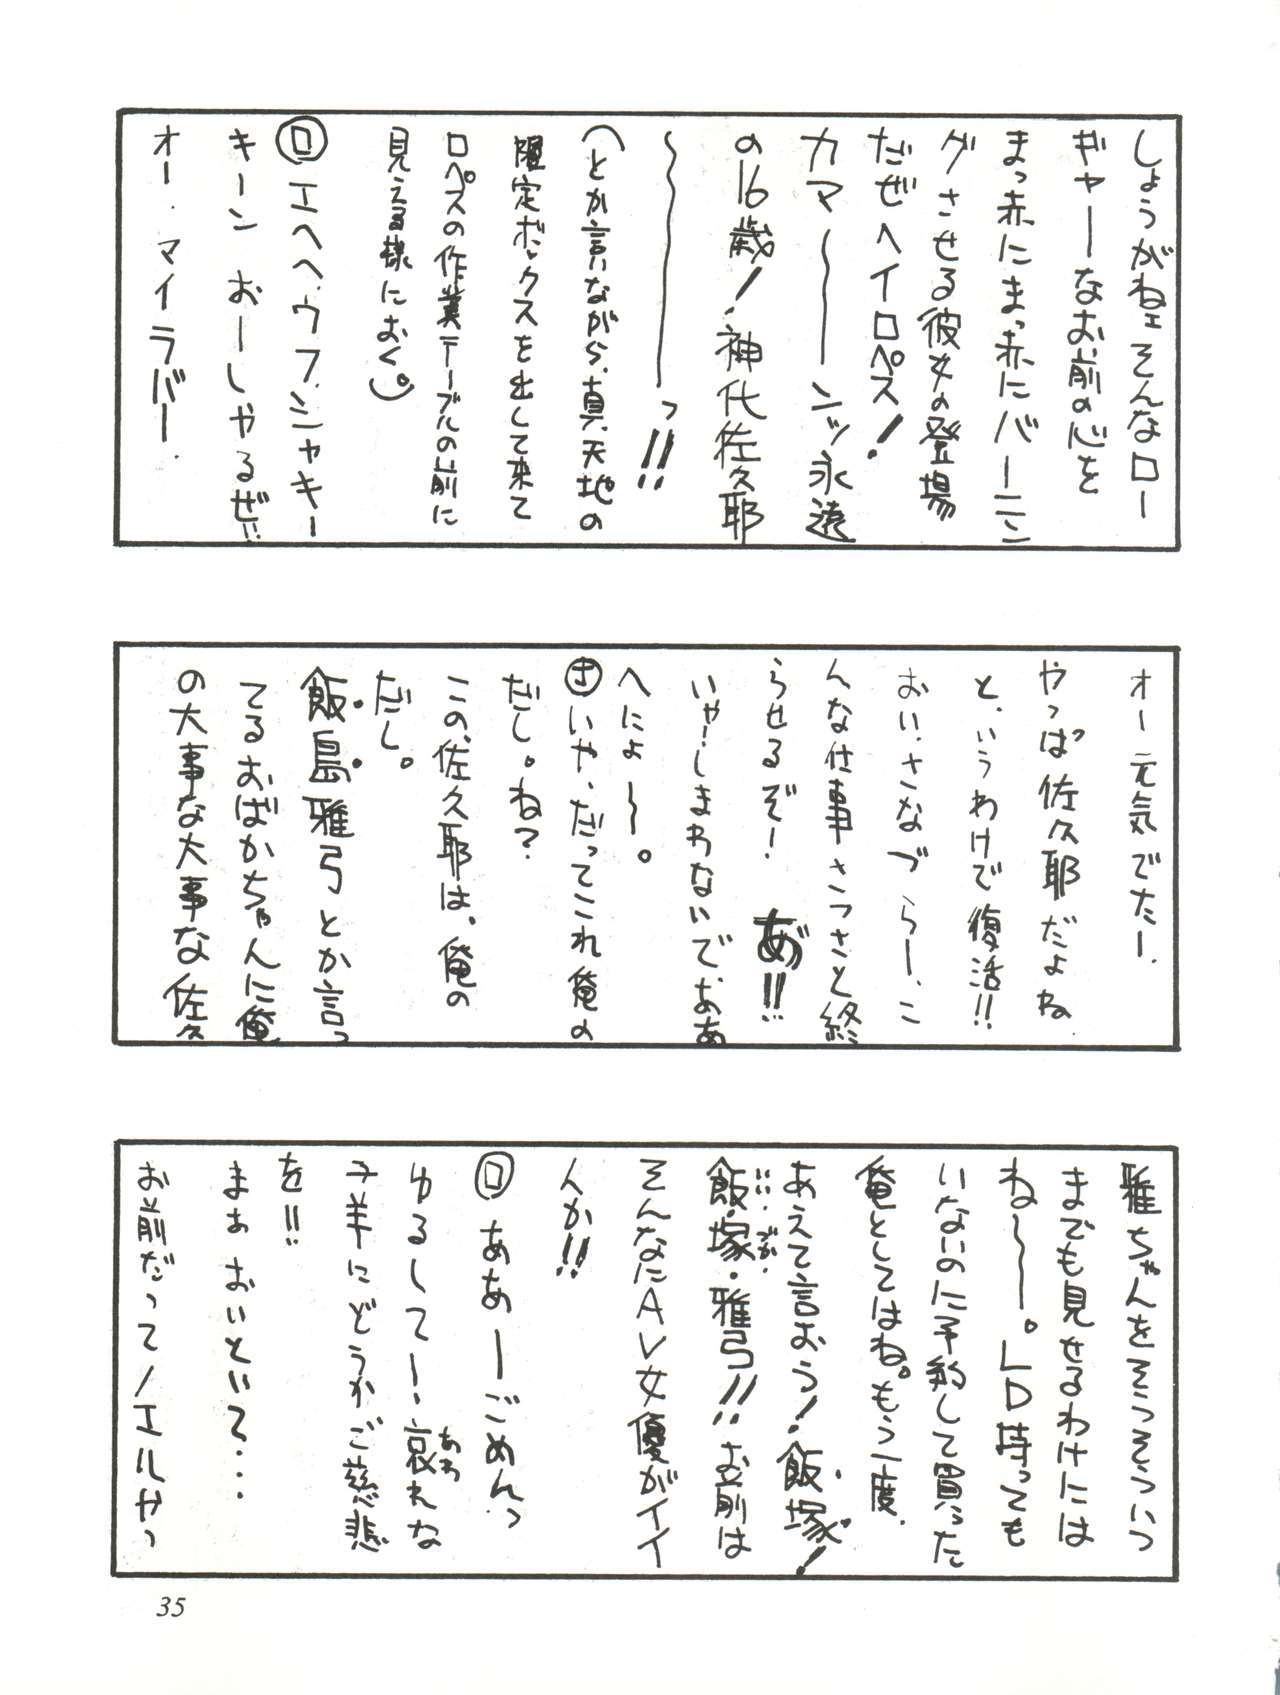 しょうがねェそんなロー
ギャーなお前の心を
まっ赤にまっ赤にバーニン
グさせる彼女の登場
だぜヘイロペス！
カマ〜〜ンッ永遠
の16歳！神代佐久耶
〜〜〜〜っ!!
(とか言いながら、真・天地の
限定ボックスを出して来て
ロペスの作業テーブルの前に
見える様におく。)
ロ エヘヘ、ウフ、シャキー
キーン おーしゃるぜ!!
オー、マイラバー、
オー元気でたー、
やっぱ佐久耶だよね
と、いうわけで復活!!
おい、さなづらー、こ
んな仕事さっさと終
らせるぞー あ゛!!
いやーしまわないでぉあ
へによ〜。
さ いや、だってこれ俺の
だし。ね？
この、佐久耶は、俺の
だし。
飯島雅弓とか言っ
てるおばかちゃんに俺
の大事な大事な佐久
雅ちゃんをそうそういつ
までも見せるわけには
ね〜〜。LD持っても
いないのに予約して買った
俺としてはね。もう一度、
あえて言おう！飯塚！
飯・塚・雅弓!!お前は
いい・づか・
そんなにAV女優がイイ
んか!!
ロ ああーごめんっ
ゆるしてー、哀れな
あわ
子羊にどうかご慈悲
を!!
まぁ おいといて・・・
お前だってノエルやっ
35